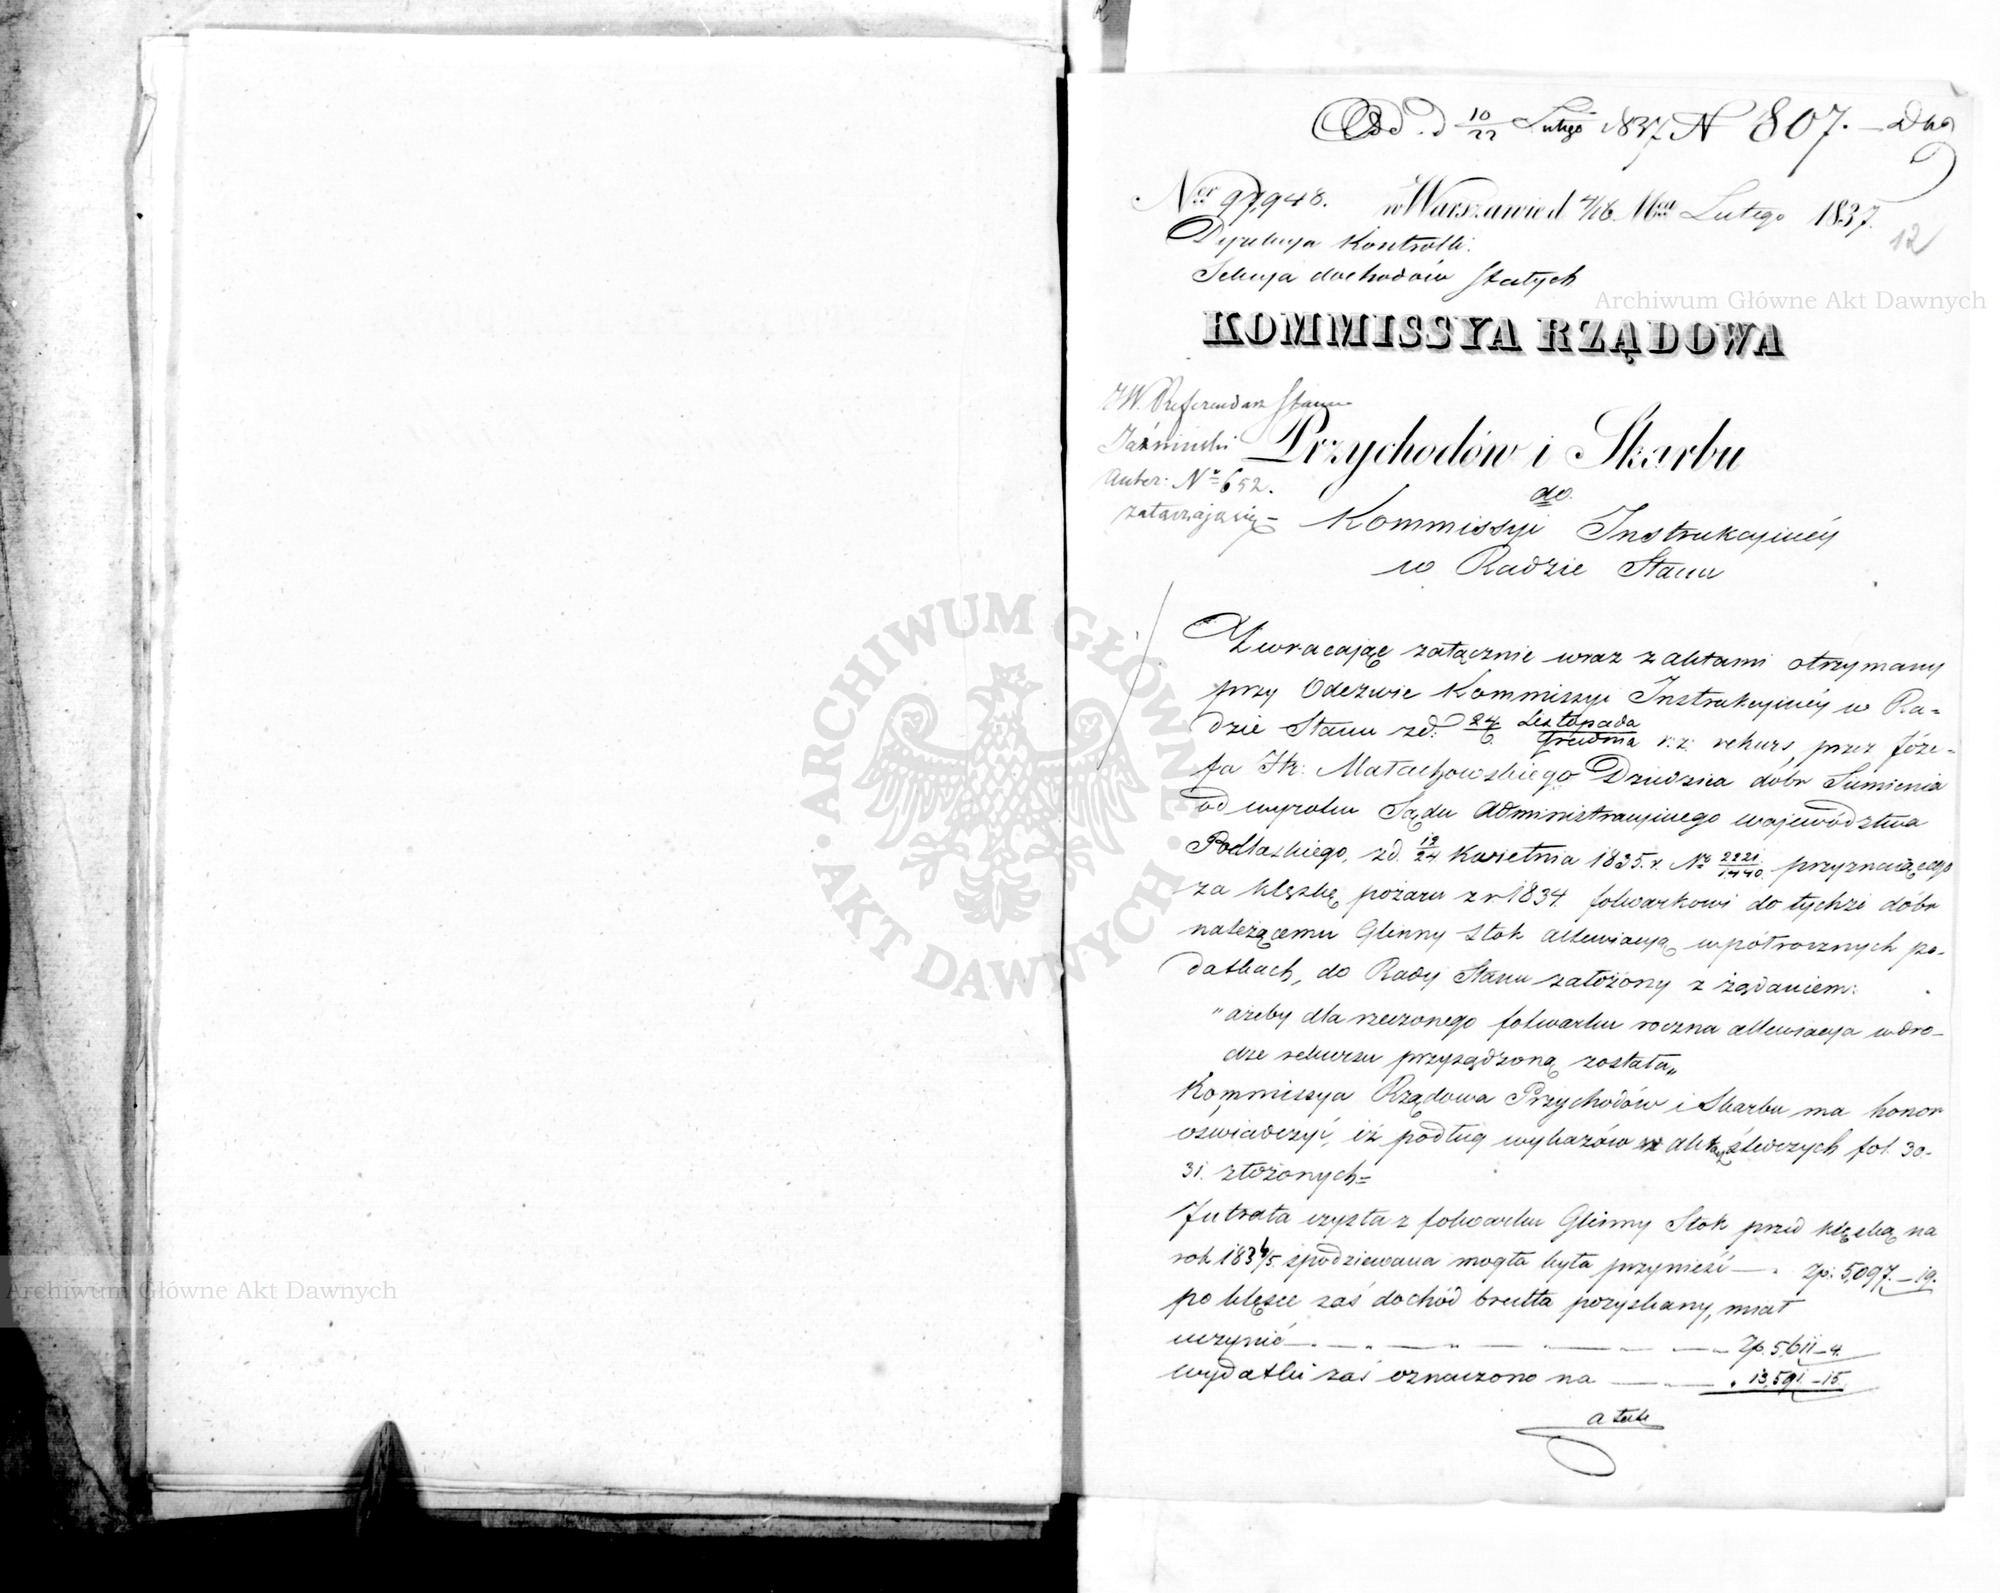 Odd. d 10/22 Lutego 1837 N 807. —
Ner 97,948. w Warszawie d 4/16 Mca Lutego 1837.
12
Dyrekcya Kontrolli.
Sekcya dochodów stałych
KOMMISSYA RZĄDOWA
JW. Referendarz Stanu
Jaźwinski
Przychodów i Skarbu
Nr 652.
do
załączają się
Kommissyi Instrukcyinéy
w Radzie Stanu
Zwracając załącznie wraz z aktami otrzymany
przy Odezwie Kommissyi Instrukcyinéy w Ra-
dzie Stanu z d. 24/6 Listopada/Grudnia r: z: rekurs przez Józe-
fa Hr: Małachowskiego Dziedzica dóbr Sumienia
od wyroku Sądu Administracyinego województwa
Podlaskiego, z d. 12/24 Kwietnia 1835. r. Nr 2221/1440 przyznaiącego
za klęskę pożaru z r 1834 folwarkowi do tychże dóbr
należącemu Glinny Stok allewiacyą w półrocznych po-
datkach, do Rady Stanu założony z żądaniem:
"ażeby dla rzeczonego folwarku roczna allewiacya w dro-
dze rekursu przysądzoną została„
Kommissya Rządowa Przychodów i Skarbu ma honor
oświadczyć, iż podług wykazów w aktach śledczych fol. 30-
31. złożonych=
Jntrata czysta z folwarku Glinny Stok przed klęską na
rok 1834/5. spodziewana mogła była przynieść — . Zp: 5,097.—19.
po klęsce zaś dochód brutto pozyskany, miał
uczynić — . — . — — — Zp. 5,611—4.
wydatki zaś oznaczono na — — . 13,591.—15.
a zatem
Archiwum Główne Akt Dawnych
Archiwum Główne Akt Dawnych
ARCHIWUM GŁÓWNE · AKT DAWNYCH ·